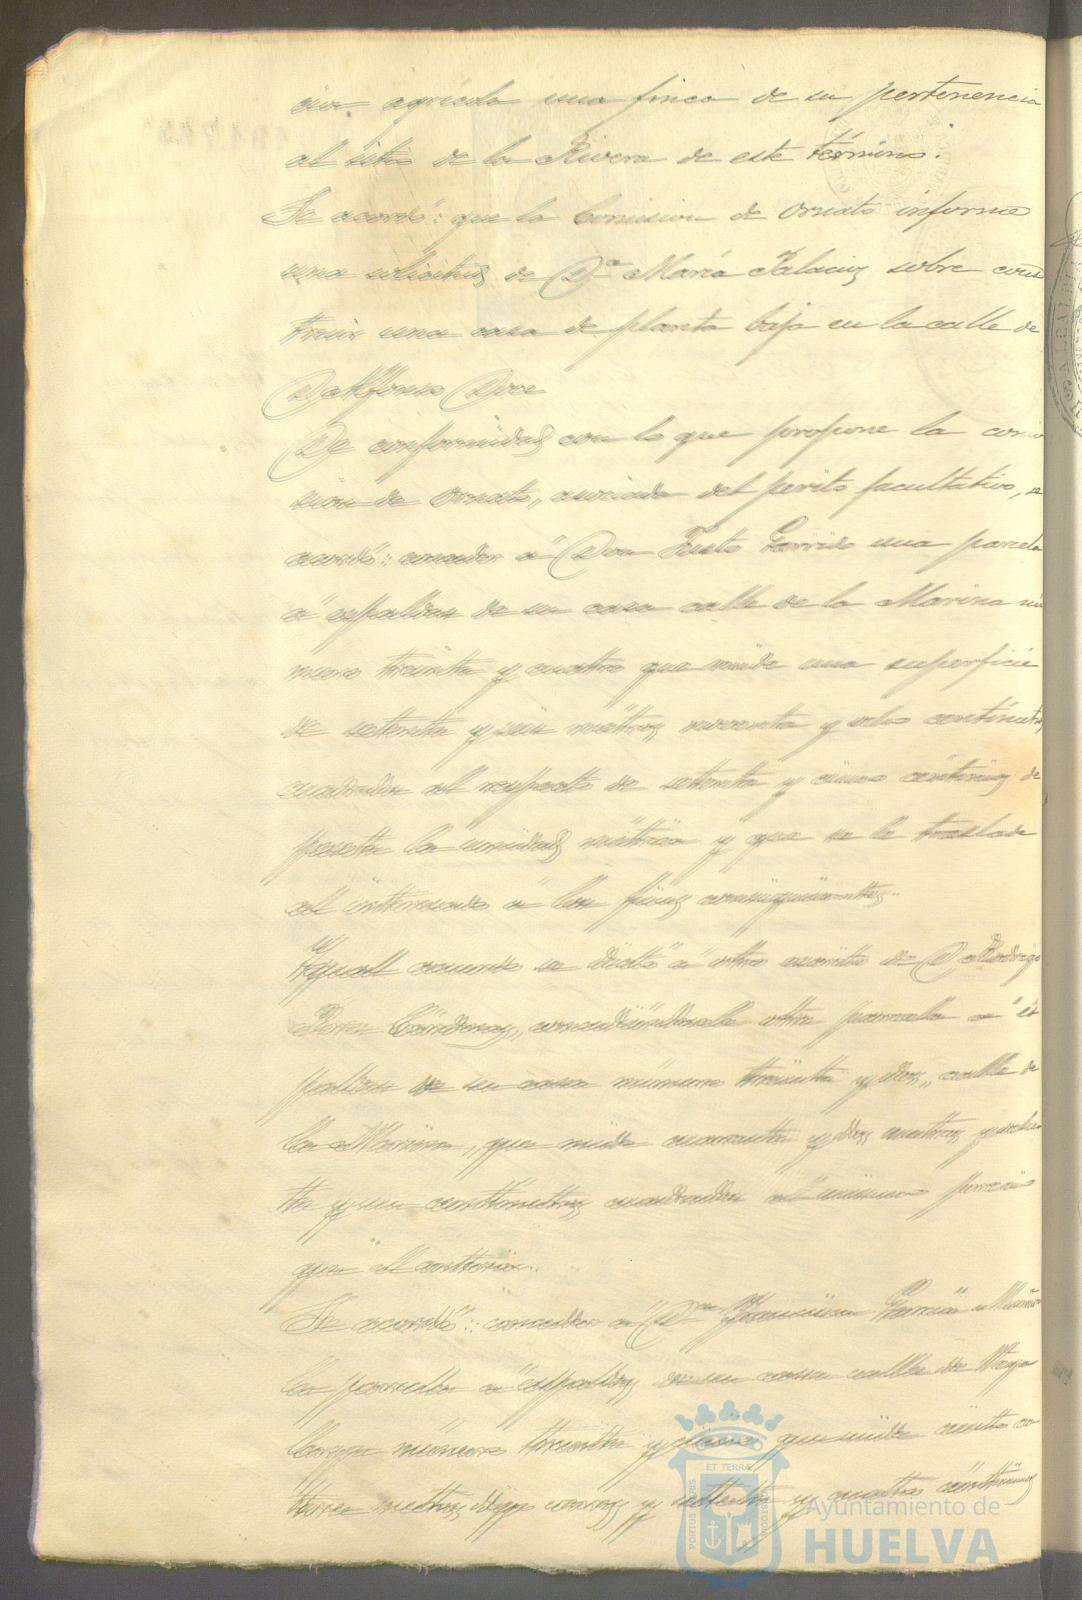 cion agricola una finca de su pertenencia
al sitio de la Rivera de este término.
Se acordó: que la Comision de Ornato informe
una solicitud de Dª Maria Palacios sobre cons
truir una casa de planta baja en la calle de
D. Alfonso Doce
De conformidad con lo que propone la comi
sion de Ornato, asociada del perito facultativo, se
acordó: conceder á Don Justo Garrido una parcela
á espaldas de su casa calle de la Marina nú
mero treinta y cuatro que mide una superficie
de setenta y seis metros noventa y ocho centímetros
cuadrados al respecto de setenta y cinco céntimos de
peseta la unidad métrica y que se le traslade
al interesado á los fines consiguientes.
Igual acuerdo se dictó á otro escrito de D. Rodrigo
Perez Cárdenas, concediéndosele otra parcela á es
paldas de su casa número treinta y dos, calle de
la Marina, que mide cuarenta y dos metros y ochen
ta y un centímetros cuadrados al mismo precio
que el anterior.
Se acordó: conceder á Dª Francisca Garcia
la parcela á espaldas de su casa calle de
número treinta y cinco que mide ciento ca
torce metros digo y setenta y cuatro centímetros
PORTUS MARIS ET TERRÆ CUSTODIA
Ayuntamiento de
HUELVA